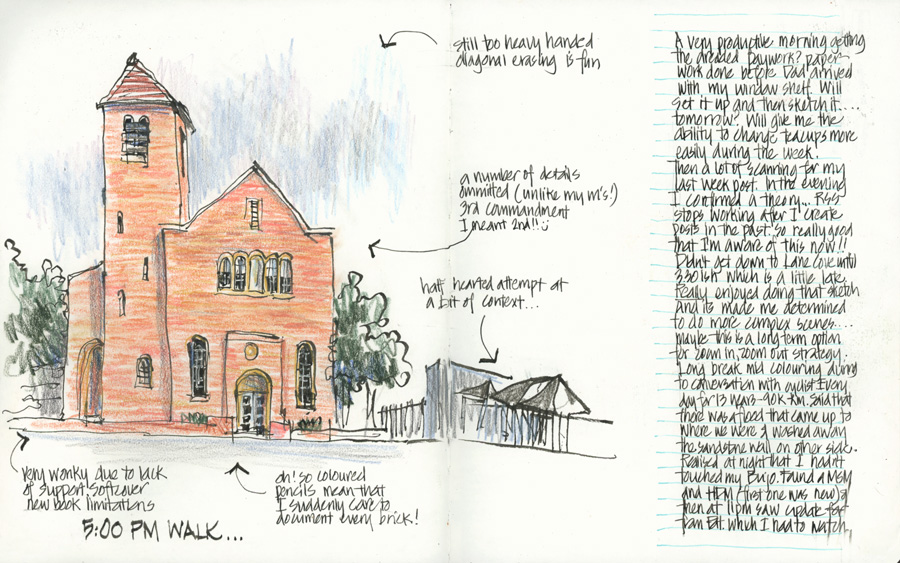 still too heavy handed
diagonal erasing is fun
a number of details
ommitted (unlike my W's!)
3rd commandment
I meant 2nd!!
half hearted attempt at
a bit of context...
very wonky due to lack
of support. Softcover
new book limitations
oh! so coloured
pencils mean that
I suddenly care to
document every brick!
5:00 PM WALK...
A very productive morning getting
the dreaded paywork? paper
work done before Dad arrived
with my window shelf. Will
set it up and then sketch it....
tomorrow? Will give me the
ability to change teacups more
easily during the week.
Then a lot of scanning for my
last week post. In the evening
I confirmed a theory... RSS
stops working after I create
posts in the past. So really good
that I'm aware of this now!!
Didn't get down to Lane Cove until
3:30ish which is a little late.
Really enjoyed doing that sketch
and its made me determined
to do more complex scenes....
maybe this is a long term option
for zoom in, zoom out strategy.
Long break mid colouring during
to conversation with cyclist. Every
day for 13 years - 90K KM. Said that
there was a flood that came up to
where we were & washed away
the sandstone wall on other side.
Realised at night that I hadn't
touched my BuJo. Found a MSM
and HTM (first one was new) &
then at 11pm saw update for
which I had to watch.